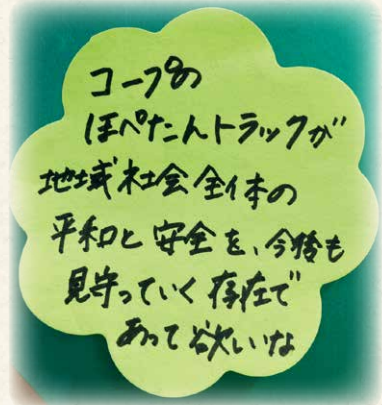 コープの
ほぺたんトラックが
地域社会全体の
平和と安全を、今後も
見守っていく存在で
あって欲しいな